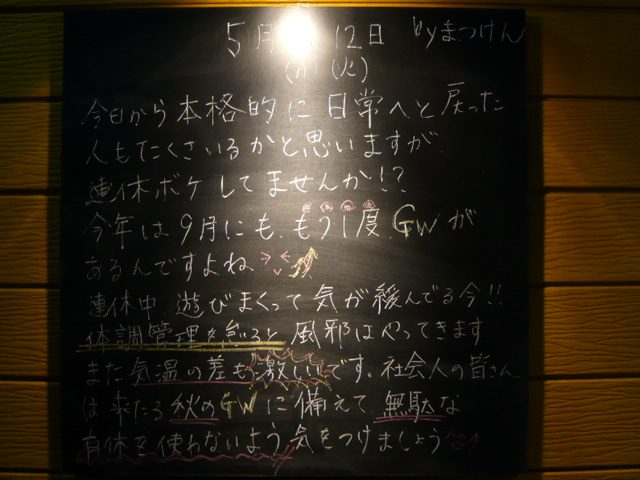 5月 12日 byまつけん
(火)
今日から本格的に日常へと戻った
人もたくさいるかと思いますが、
連休ボケしてませんか!?
今年は9月にも、もう1度、GWが
あるんですよね
連休中 遊びまくって気が緩んでる今!!
体調管理を怠ると 風邪はやってきます
また気温の差も激しいです。社会人の皆さん、
は来たる秋のGWに備えて、無駄な
有休を使わないよう気をつけましょう